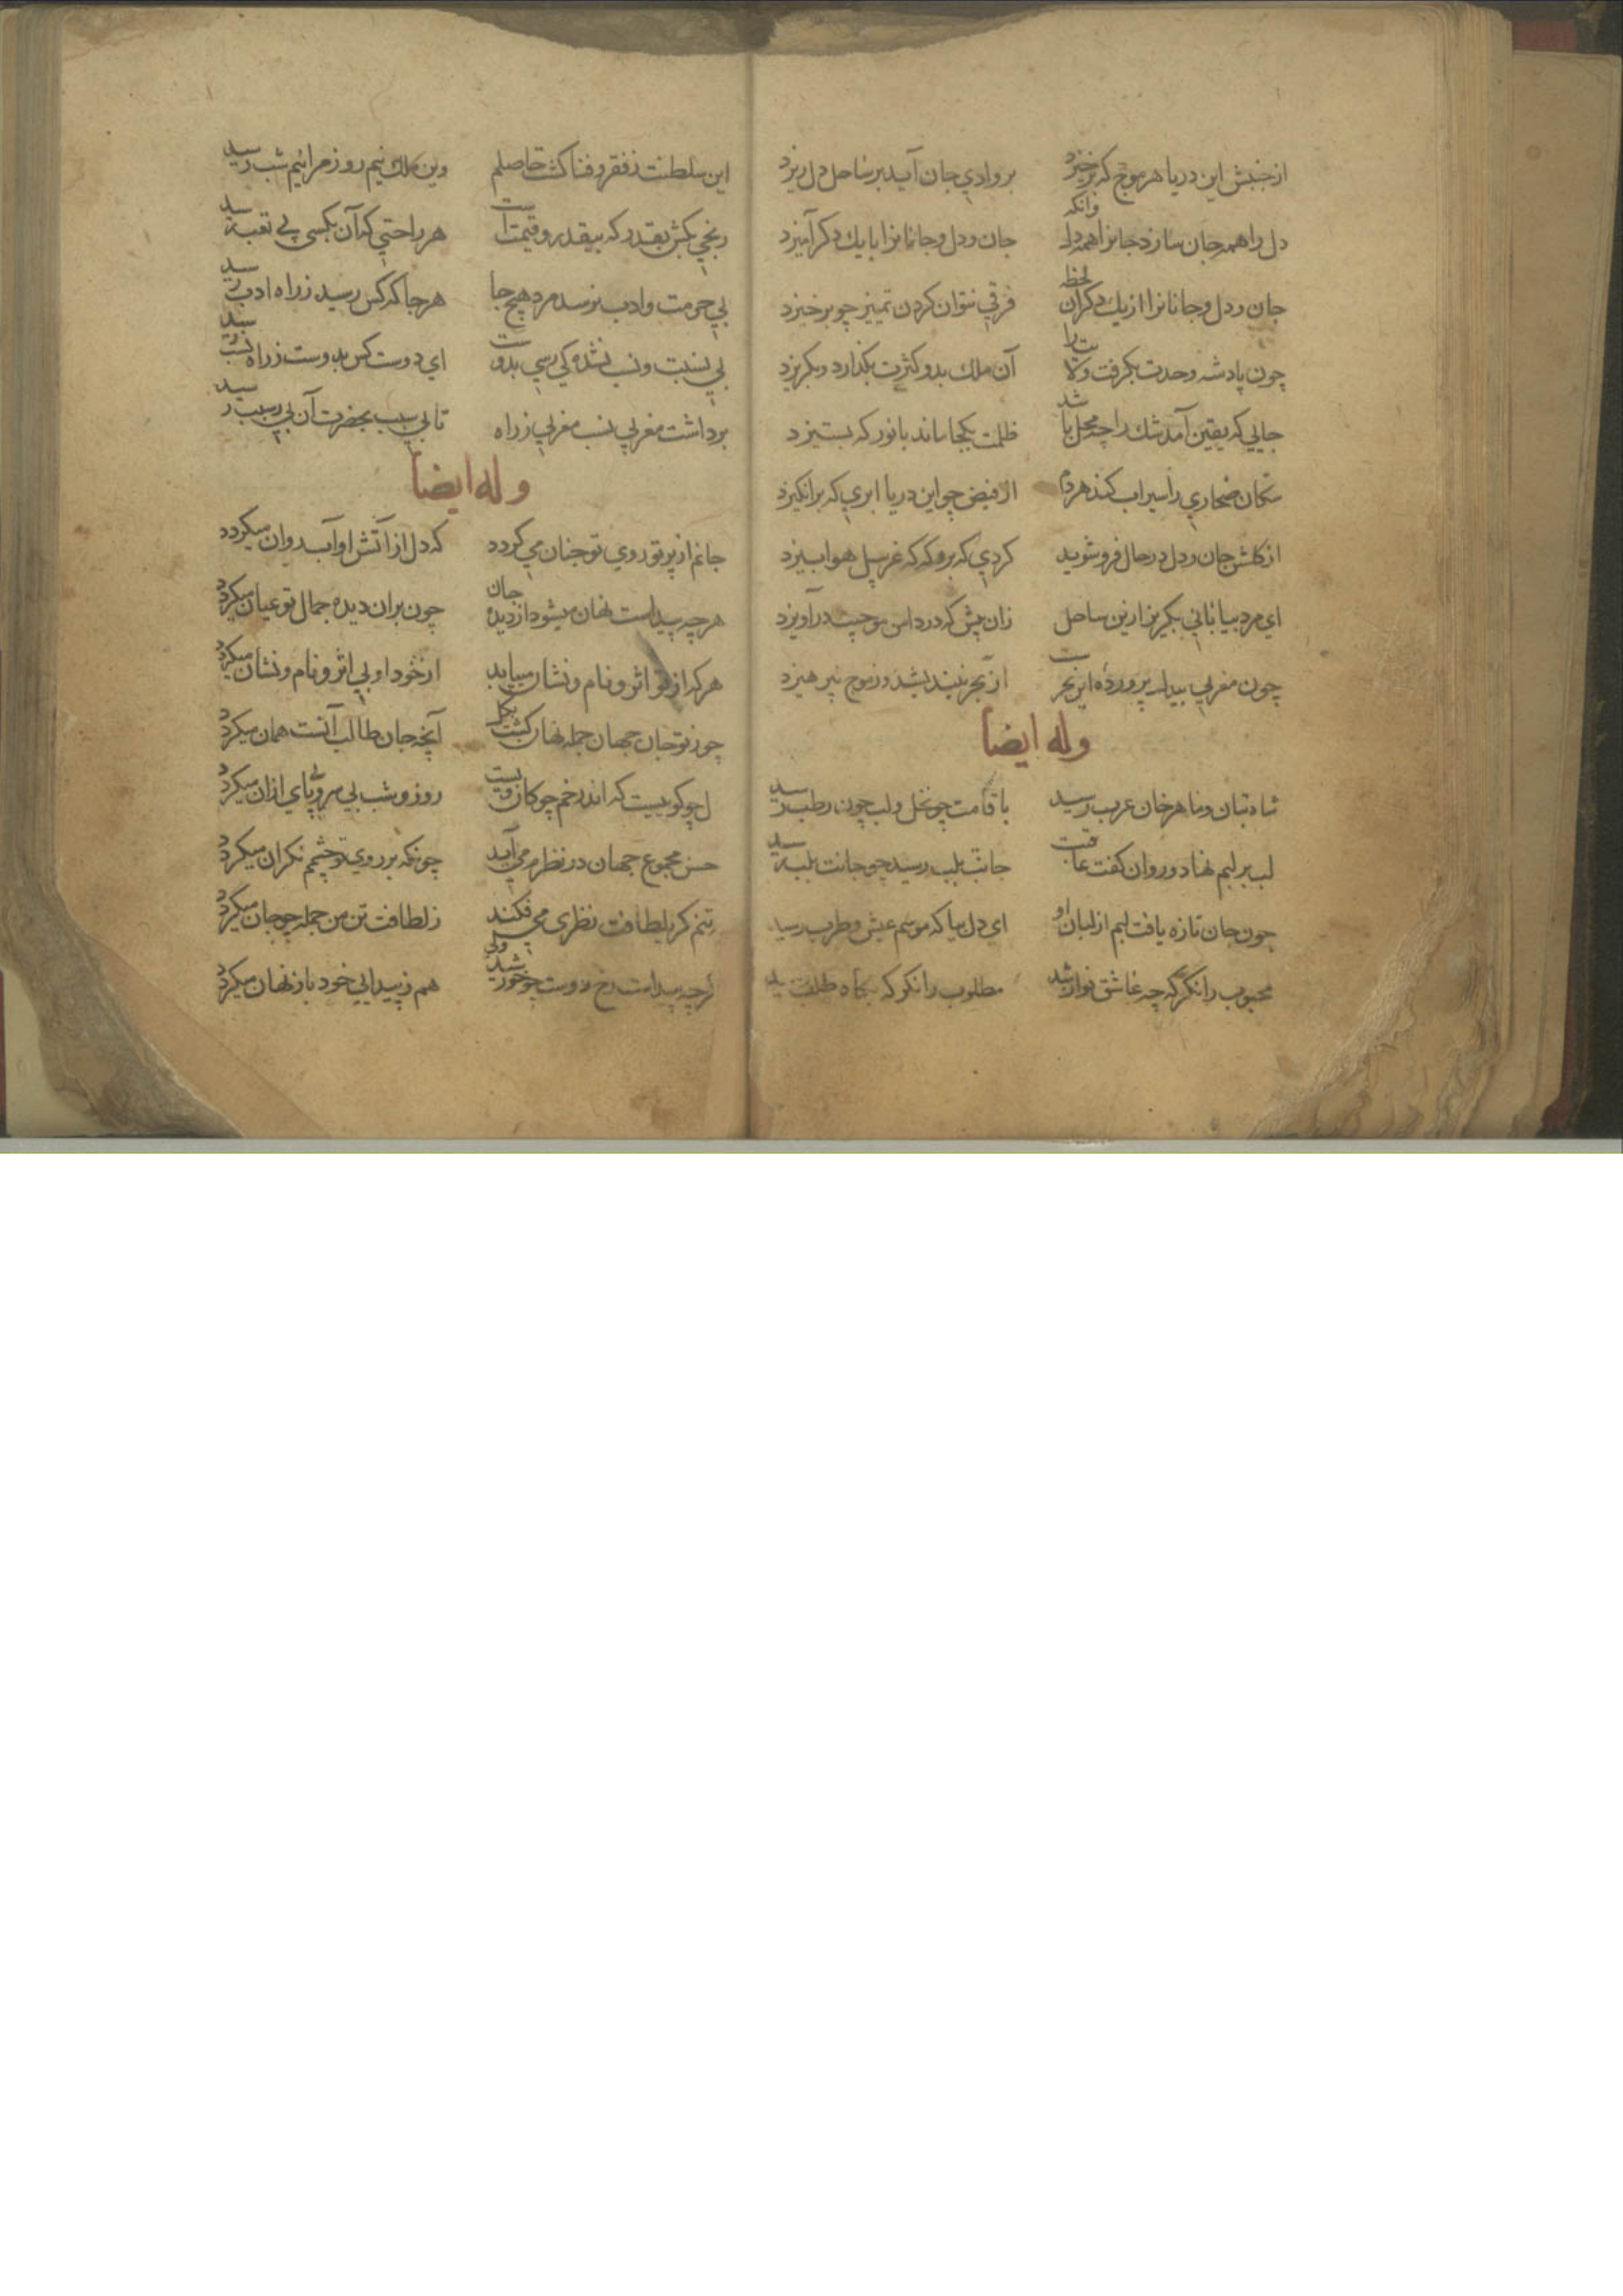 از جنبش این دریا هر موج که برخیزد بر وادی جان آید بر ساحل دل ریزد
دل را همه جان سازد جانرا همه دل وانکه جان و دل و جانانرا با یك دكر آمیزد
جان و دل و جانانرا از یك دكران لحظه فرقی نتوان كردن تمییز چو برخیزد
چون پادشه وحدت بكرفت ولایت را آن ملك بدو كثرت بكذارد و بكریزد
جایی كه یقین آمد شك را چه محل باشد ظلمت بكجا ماند با نور كه بستیزد
سكان صحاری را سیراب كند هر دم از فیض چو این دریا ابری كه برانكیزد
از كلش جان و دل در حال فرو شوید كردی كه برو كه كه غربیل هوا بیزد
ای مرد بیابانی بكریز ازین ساحل زان پیش كه در دامن موجیت درآویزد
چون مغربی بیدل پرورده این بحرست از بحر نیندیشد وز موج نپرهیزد
وله ایضا
شاه بتان و ماهرخان عرب رسید با قامت چو نخل و لب چون رطب رسید
لب بر لبم نهاد و روان كفت عاقبت جانت بلب رسید چو جانت بلب رسید
چون جان تازه یافت لبم از لبان او ای دل بیا كه موسم عیش و طرب رسید
محبوب را نكر كه چه عاشق نواز شد مطلوب را نكر كه بكاه طلب رسید
این سلطنت ز فقر و فنا كشت حاصلم وین ملك نیم روز مرا نیم شب رسید
رنجی بكش بقدر كه بیقدر و قیمت است هر راحتی كه آن بكسی بی تعب رسید
بی حرمت و ادب نرسد مرد هیچ جا هر جا كه كس رسید ز راه ادب رسید
بی نسبت و نسب نشده كی رسی بدوست ای دوست كس بدوست ز راه نسب رسید
برداشت مغربی نسب مغربی ز راه تا بی سبب بحضرت آن بی سبب رسید
وله ایضا
جانم از پرتو روی تو چنان می كردد كه دل از آتش او آب روان میكردد
هر چه پیداست نهان میشود از دیده جان چون بران دیده جمال تو عیان میكردد
هر كه از تو اثر و نام و نشان مییابد از خود او بی اثر و نام و نشان میكردد
چون تو جان جهان جمله نهان كشت بكل آنچه جان طالب آنست همان میكردد
ل چو كوییست كه اندر خم چوكان ویست روز و شب بی سر و بی پای ازان میكردد
حسن مجموع جهان در نظرم می آید چونكه بر روی تو چشمم نكران میكردد
بتنم كر بلطافت نظری می فكند ز لطافت تن من جمله چو جان میكردد
كرچه پیداست رخ دوست چو خورشید ولی هم ز پیدایی خود باز نهان میكردد